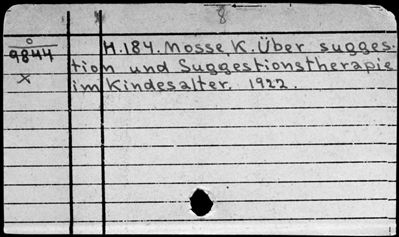 8
o
9844
x
H.184. Mosse K. Über sugges-
tion und Suggestionstherapie
im Kindesalter. 1922.